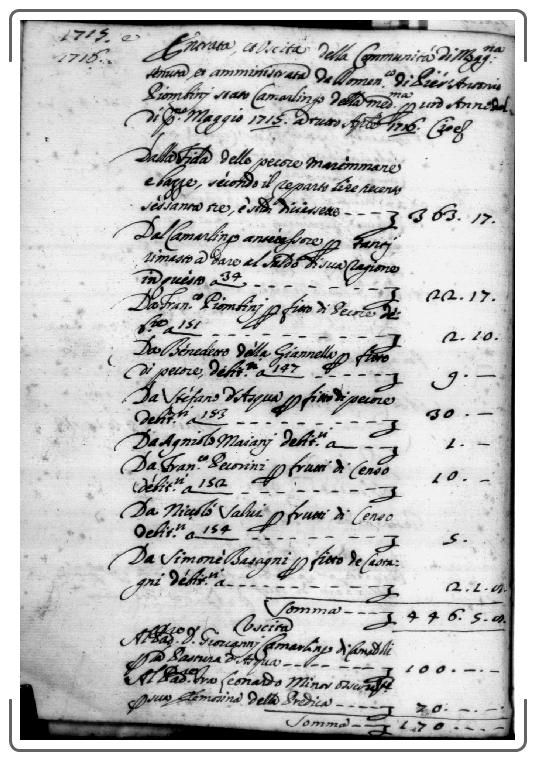 1715. e
1716.
Entrata, et Uscita della Communità di Magna:
tenuta, et amministrata da Domen.co di Pier Antonio
Piombini stato Camarlingo della med.ma p un Anno
di p.mo Maggio 1715. a tutto Aple 1716. Cioè
Dalla Fida delle pecore maremmane
e bazze, secondo il reparto lire trecento
sessanta tre, e soldi diciessette --- £ 363. 17.
Dal Camarlingo antecessore p
rimasto a dare al Saldo di sua ragione
in questo a 34 --- £ 22. 17.
Da Fran.co Piombini p fitto di Pecore
a 151 --- £ 2. 10.
Da Benedetto della Giannella p fitto
di pecore, debit.ri a 147 --- £ 9. —
Da Stefano d'Acqua p fitto di pecore
debit.ri a 153 --- £ 30. —
Da Agniolo Maiani debit.ri a — --- £ 1. —
Da Fran.co Pecorini p frutti di Censo
debit.ri a 152 --- £ 10. —
Da Niccolò Salvi p frutti di Censo
debit.ri a 154 --- £ 5.
Da Simone Basagni p fitto de Casta-
gni debit.ri a --- £ 2. 1. 8.
Somma --- £ 446. 5. 8.
Uscita
Al Pad. D. Giovanni Camarlingo di Camaldoli
p la Pastura d'Acqua --- £ 100. — . —
Al Pad. fra Leonardo Minor
p sua Elemosina della Predica --- £ 70. — . —
Somma --- 170. — . —